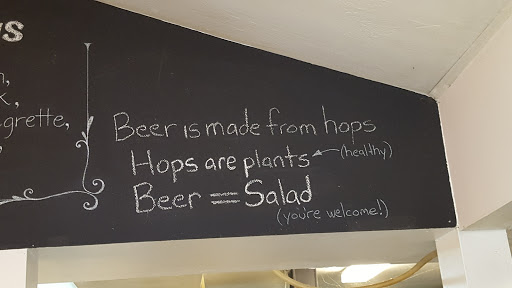 us
grette,
Beer is made from hops
Hops are plants (healthy)
Beer = Salad
(you're welcome!)